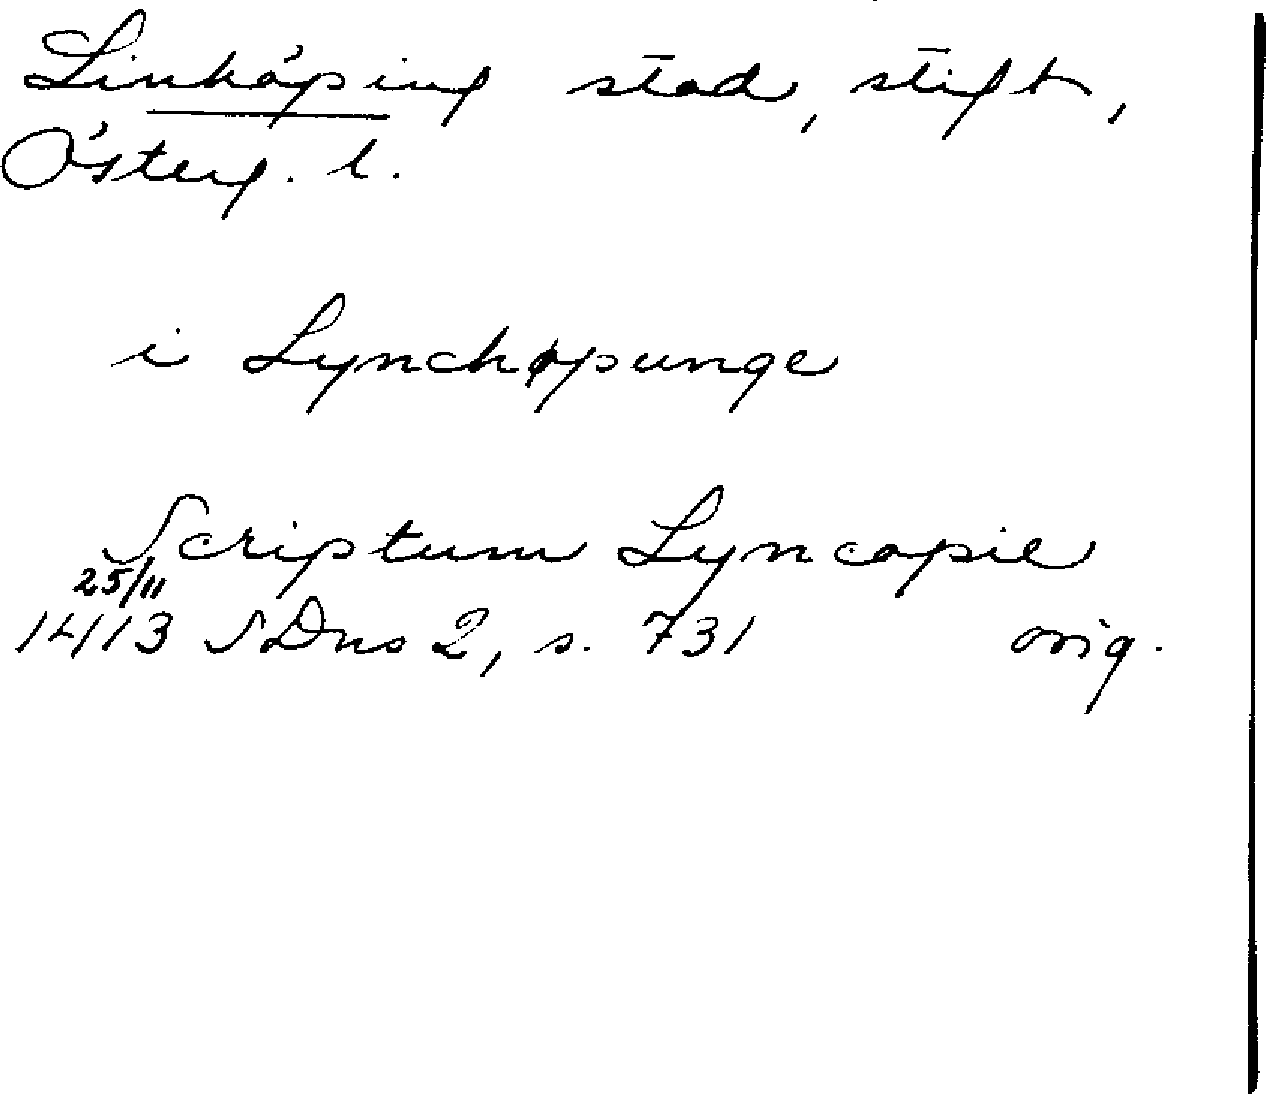 Linköping stad, stift,
Österg. l.
i Lynchøpunge
Scriptum Lyncopie
25/11
1413 SDns 2, s. 731 orig.